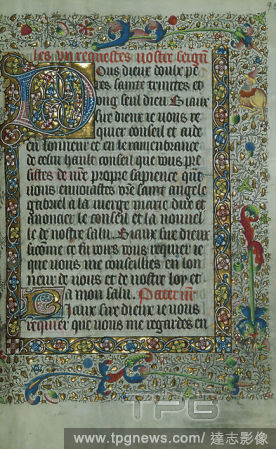 les vii requestes nostre seign̄
Dous dieux doulx pe
res sainte trinites et
ong seul dieu Biaux
sire dieu ie vous re
quier conseil et aide
en lonneur et en le ramenbrance
de celui hault conseil que vous pre
sistes de vr̄e propre sapience que
vous envoiastes vr̄e saint angele
gabriel a la vierge marie dire et
anoncer le conseil et la nouvel
le de nostre salu. Biaux sire dieux
sicōme ce fu voirs vous requier ie
que vous me conseilles en lon
neur de vous et de nostre loy et
a mon salu. Pater nr̄
Biaux sire dieux ie vous
requier que vous me regardes en
TPG
www.tpgnews.com/ 達志影像